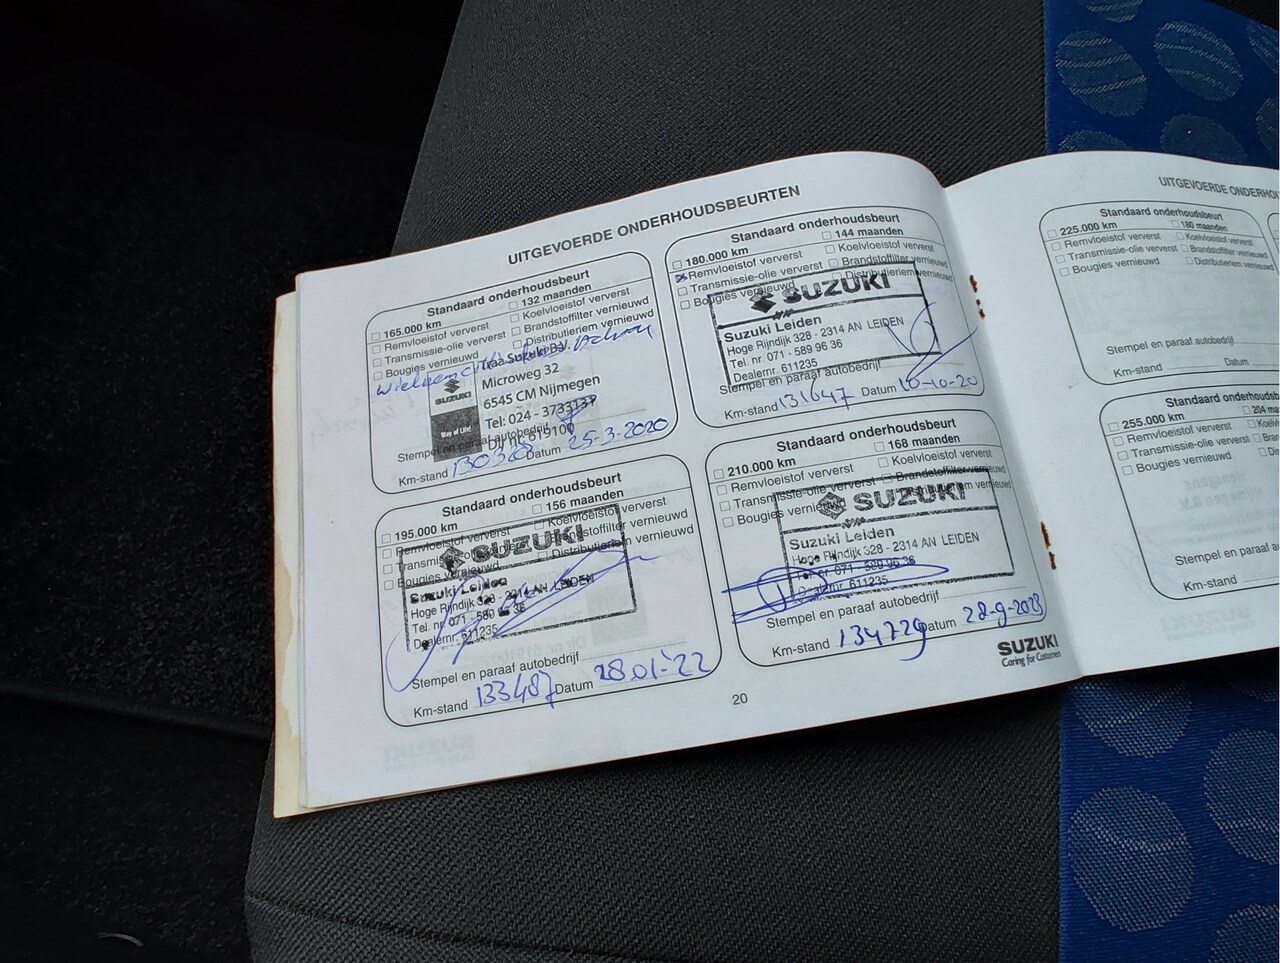 UITGEVOERDE ONDERHOUDSBEURTEN
Standaard onderhoudsbeurt
165.000 km 132 maanden
Remvloeistof ververst Koelvloeistof ververst
Transmissie-olie ververst Brandstoffilter vernieuwd
Bougies vernieuwd Distributieriem vernieuwd
Suzuki B.V.
Microweg 32
SUZUKI
6545 CM Nijmegen
Way of Life!
Tel: 024 - 3733137
Dlr.nr. 619100
Stempel en paraaf autobedrijf
Km-stand 130328 Datum 25-3-2020
Standaard onderhoudsbeurt
180.000 km 144 maanden
Remvloeistof ververst Koelvloeistof ververst
Transmissie-olie ververst Brandstoffilter vernieuwd
Bougies vernieuwd Distributieriem vernieuwd
SUZUKI
Suzuki Leiden
Hoge Rijndijk 328 - 2314 AN LEIDEN
Tel. nr. 071 - 589 96 36
Dealernr. 611235
Stempel en paraaf autobedrijf
Km-stand 131647 Datum 10-10-20
Standaard onderhoudsbeurt
195.000 km 156 maanden
Remvloeistof ververst Koelvloeistof ververst
Brandstoffilter vernieuwd
Bougies vernieuwd Distributieriem vernieuwd
SUZUKI
Suzuki Leiden
Hoge Rijndijk 328 - 2314 AN LEIDEN
Tel. nr. 071 - 589 96 36
Dealernr. 611235
Stempel en paraaf autobedrijf
Km-stand 133487 Datum 28.01-'22
Standaard onderhoudsbeurt
210.000 km 168 maanden
Remvloeistof ververst Koelvloeistof ververst
Transmissie-olie ververst Brandstoffilter vernieuwd
Bougies vernieuwd Distributieriem vernieuwd
SUZUKI
Suzuki Leiden
Hoge Rijndijk 328 - 2314 AN LEIDEN
Tel. nr. 071 - 589 96 36
Dealernr. 611235
Stempel en paraaf autobedrijf
Km-stand 134729 Datum 28-9-2023
SUZUKI
Caring for Customers
20
UITGEVOERDE ONDERHOU
Standaard onderhoudsbeurt
225.000 km 180 maanden
Remvloeistof ververst Koelvloeistof ververst
Transmissie-olie ververst Brandstoffilter vernieuwd
Bougies vernieuwd Distributieriem vernieuwd
Stempel en paraaf autobedrijf
Km-stand Datum
Standaard onderhoudsb
255.000 km 204 ma
Remvloeistof ververst Koelvl
Transmissie-olie ververst Bra
Bougies vernieuwd Dis
Stempel en paraaf a
Km-stand